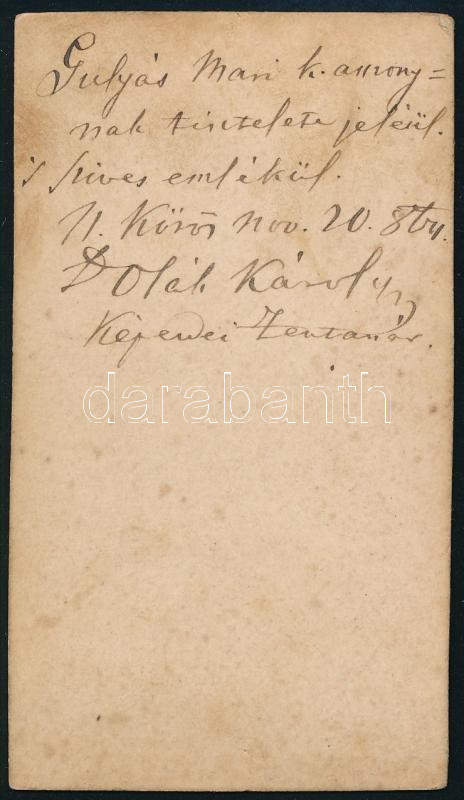 Gulyás Mari k. assony=
nak tisztelete jeléül.
's szives emlékül.
N. Körös nov. 20.
D Oláh Károly
Képezdei Zenetanár.
darabanth